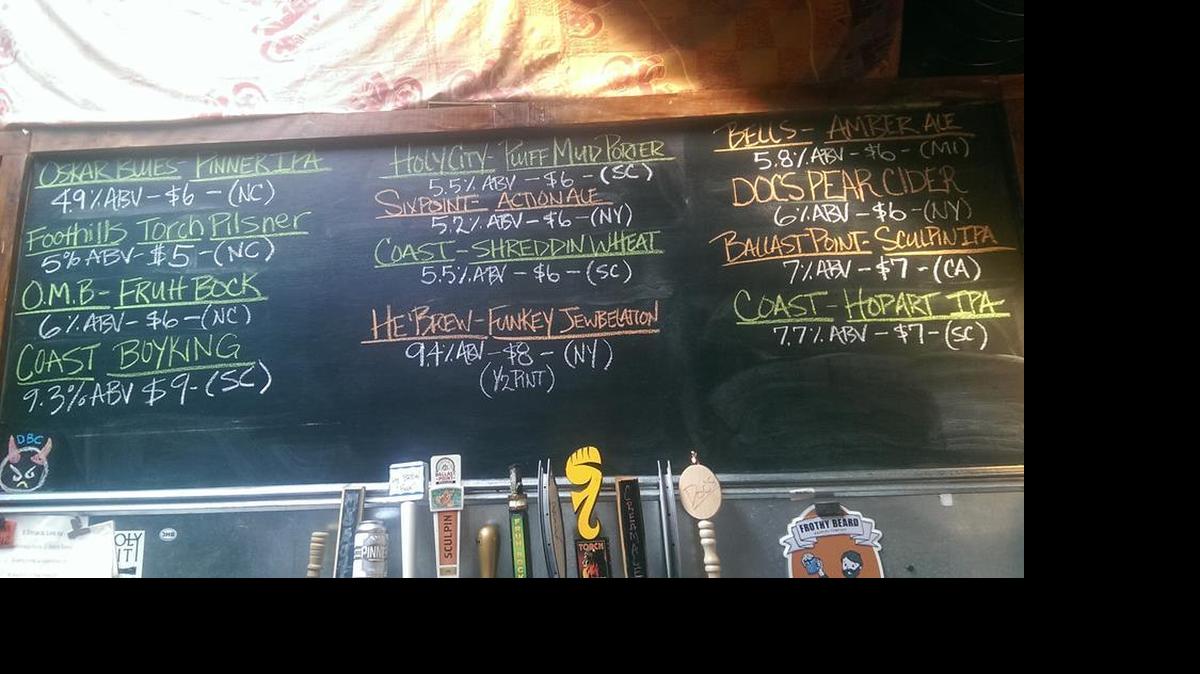 OSKAR BLUES - PINNER IPA
4.9% ABV - $6 - (NC)
Foothills Torch Pilsner
5% ABV - $5 - (NC)
O.M.B - FRUH BOCK
6% ABV - $6 - (NC)
COAST BOYKING
9.3% ABV $9 - (SC)
DBC
HOLY CITY - PLUFF MUD PORTER
5.5% ABV - $6 - (SC)
SIXPOINT - ACTION ALE
5.2% ABV - $6 - (NY)
COAST - SHREDDIN WHEAT
5.5% ABV - $6 - (SC)
HE'BREW - FUNKEY JEWBELATION
9.4% ABV - $8 - (NY)
(1/2 PINT)
BELLS - AMBER ALE
5.8% ABV - $6 - (MI)
DOCS PEAR CIDER
6% ABV - $6 - (NY)
BALLAST POINT - SCULPIN IPA
7% ABV - $7 - (CA)
COAST - HOPART IPA
7.7% ABV - $7 - (SC)
PINNER
BALLAST
POINT
SCULPIN
TORCH
CREAM ALE
FROTHY BEARD